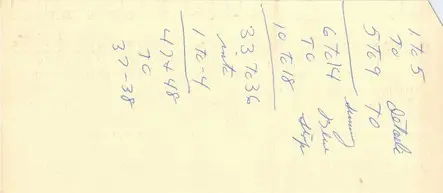 1 to 5
To details
5 to 9 TO
6 to 14 Blue
TO
10 to 18
33 to 36
into
1 to -4
47+48
TO
37-38